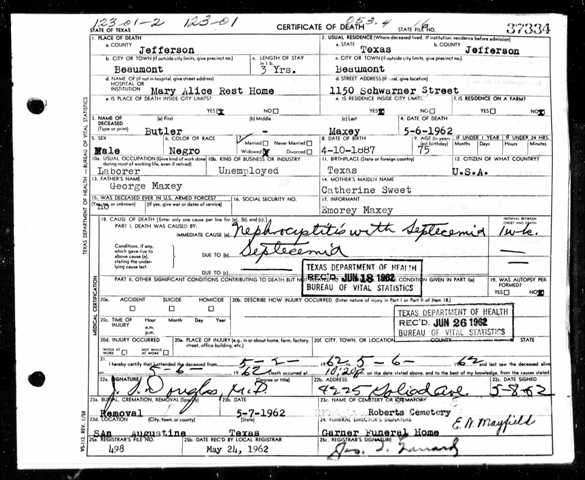 123-01-2 123-01 053.4 16
STATE OF TEXAS CERTIFICATE OF DEATH STATE FILE NO. 37334
1. PLACE OF DEATH 2. USUAL RESIDENCE (Where deceased lived. If institution: residence before admission)
a. COUNTY Jefferson a. STATE Texas b. COUNTY Jefferson
b. CITY OR TOWN (If outside city limits, give precinct no.) c. LENGTH OF STAY c. CITY OR TOWN (If outside city limits, give precinct no.)
Beaumont 3 Yrs. Beaumont
d. NAME OF (If not in hospital, give street address) HOSPITAL OR INSTITUTION d. STREET ADDRESS (If rural, give location)
Mary Alice Rest Home 1150 Schwarner Street
e. IS PLACE OF DEATH INSIDE CITY LIMITS? e. IS RESIDENCE INSIDE CITY LIMITS? f. IS RESIDENCE ON A FARM?
YES NO YES NO YES NO
3. NAME OF DECEASED (Type or print) (a) First (b) Middle (c) Last 4. DATE OF DEATH
Butler - Maxey 5-6-1962
5. SEX 6. COLOR OR RACE 7. Married Never Married 8. DATE OF BIRTH 9. AGE (In years last birthday) IF UNDER 1 YEAR IF UNDER 24 HRS.
Male Negro Widowed Divorced 4-10-1887 75 Months Days Hours Minutes
10a. USUAL OCCUPATION (Give kind of work done during most of working life, even if retired) 10b. KIND OF BUSINESS OR INDUSTRY 11. BIRTHPLACE (State or foreign country) 12. CITIZEN OF WHAT COUNTRY?
Laborer Unemployed Texas U.S.A.
13. FATHER'S NAME 14. MOTHER'S MAIDEN NAME
George Maxey Catherine Sweet
15. WAS DECEASED EVER IN U.S. ARMED FORCES? 16. SOCIAL SECURITY NO. 17. INFORMANT
(Yes, no, or unknown) (If yes, give war or dates of service) no Emorey Maxey
18. CAUSE OF DEATH [Enter only one cause per line for (a), (b), and (c).] INTERVAL BETWEEN
PART I. DEATH WAS CAUSED BY:
IMMEDIATE CAUSE (a) Nephrocystitis with Septecemia 1 wk.
Conditions, if any, which gave rise to above cause (a), stating the underlying cause last. DUE TO (b) Septecemia
DUE TO (c)
PART II. OTHER SIGNIFICANT CONDITIONS CONTRIBUTING TO DEATH BUT NOT CONDITION GIVEN IN PART I(a) 19. WAS AUTOPSY PERFORMED?
YES NO
TEXAS DEPARTMENT OF HEALTH
REC'D JUN 18 1962
BUREAU OF VITAL STATISTICS
20a. ACCIDENT SUICIDE HOMICIDE 20b. DESCRIBE HOW INJURY OCCURRED. (Enter nature of injury in Part I or Part II of item 18.)
TEXAS DEPARTMENT OF HEALTH
REC'D JUN 26 1962
BUREAU OF VITAL STATISTICS
20c. TIME OF INJURY Hour Month Day Year
a.m.
p.m.
20d. INJURY OCCURRED 20e. PLACE OF INJURY (e.g., in or about home, farm, factory, street, office building, etc.) 20f. CITY, TOWN, OR LOCATION COUNTY STATE
WHILE AT WORK NOT WHILE AT WORK
21. I hereby certify that I attended the deceased from 5-2- 1962 5-6- 62 and last saw the deceased alive
5-6- 62 10:20 on the date stated above, and to the best of my knowledge, from the causes stated
22a. SIGNATURE (Degree or title) 22b. ADDRESS 22c. DATE SIGNED
Douglas, M.D. 4225 Goliad Ave 5-8-62
23a. BURIAL, CREMATION, REMOVAL (Specify) 23b. DATE 23c. NAME OF CEMETERY OR CREMATORY
Removal 5-7-1962 Roberts Cemetery
23d. LOCATION (City, town, or county) (State) 24. FUNERAL DIRECTOR'S SIGNATURE E.A. Mayfield
SAn Augustine Texas Garner Funeral Home
25a. REGISTRAR'S FILE NO. 25b. DATE REC'D BY LOCAL REGISTRAR 25c. REGISTRAR'S SIGNATURE
498 May 24, 1962
TEXAS DEPARTMENT OF HEALTH - BUREAU OF VITAL STATISTICS
MEDICAL CERTIFICATION
VS-112 REV. 1/58